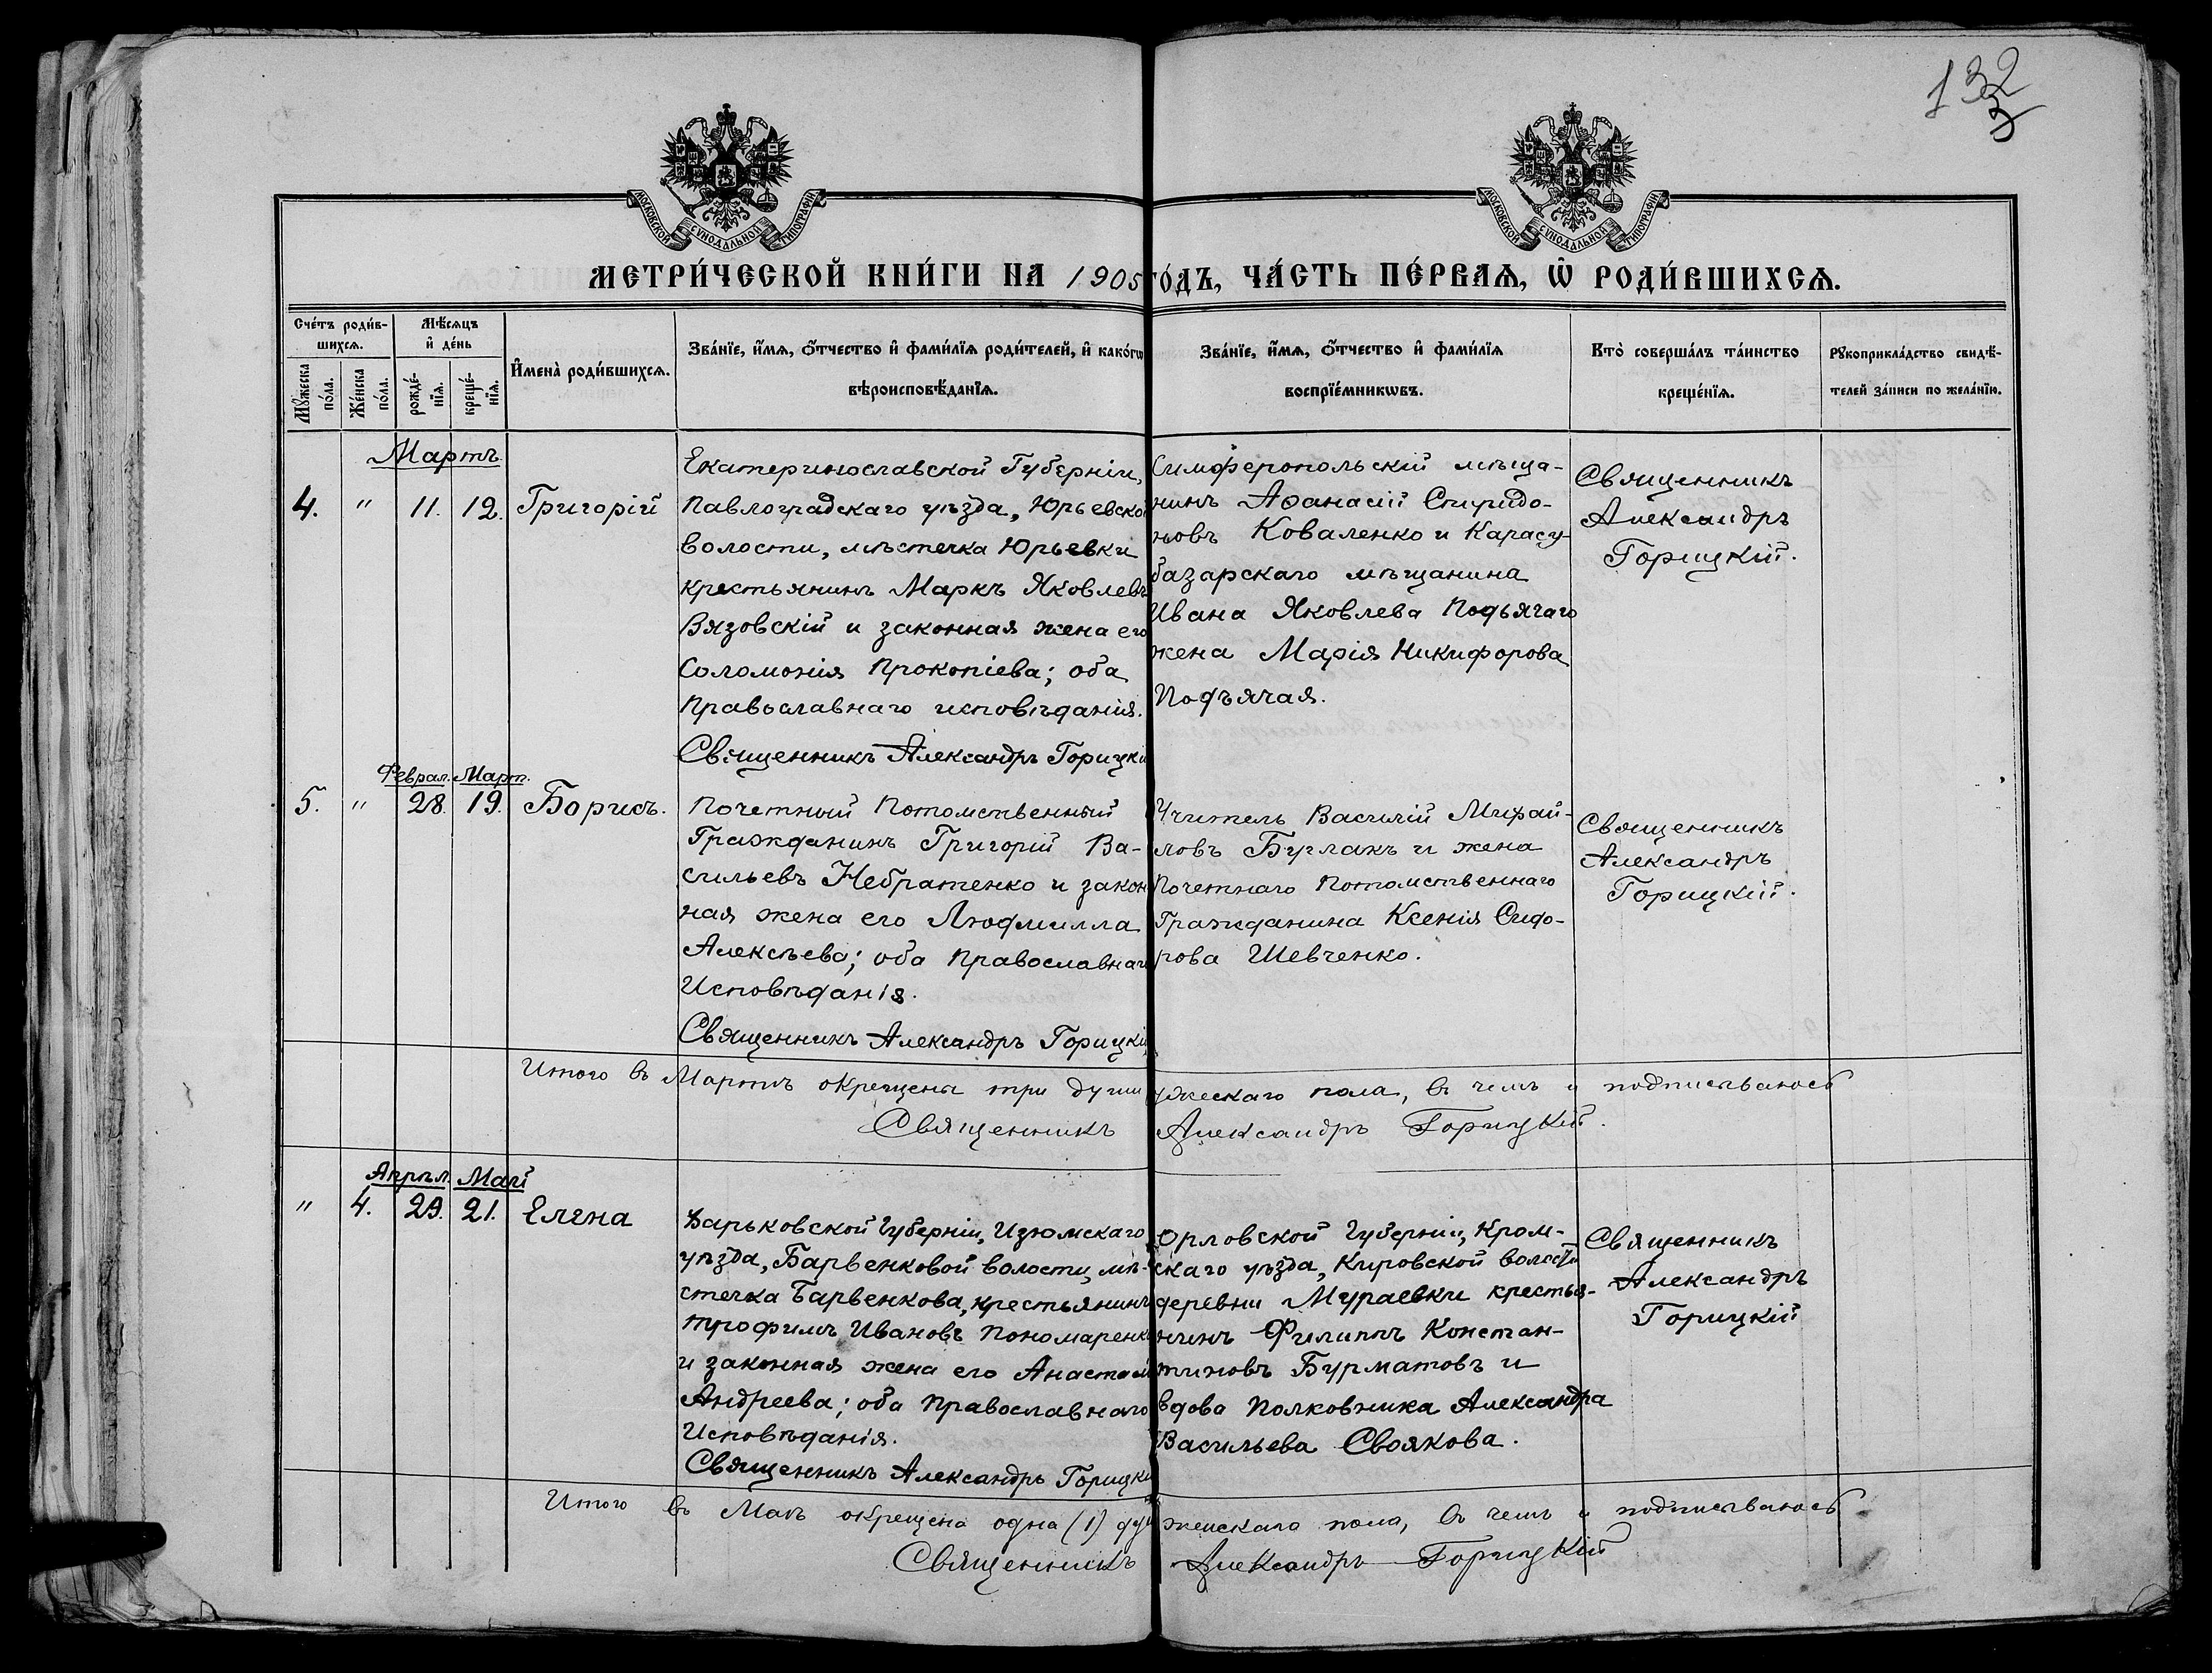 132
3
МОСКОВСКОЙ СѴНОДАЛЬНОЙ ТИПОГРАФІИ
МОСКОВСКОЙ СѴНОДАЛЬНОЙ ТИПОГРАФІИ
МЕТРИ́ЧЕСКОЙ КНИ́ГИ НА 1905 ГО́ДЪ, ЧА́СТЬ ПЕ́РВАѦ, Ѽ РОДИ́ВШИХСѦ.
Сче́тъ роди́в-
шихсѧ.
Мꙋ́жеска по́ла.
Же́нска по́ла.
Мѣ́сѧцъ
и҆ де́нь
рожде́-
нїѧ.
креще́-
нїѧ.
И҆мена̀ роди́вшихсѧ.
Зва́нїе, и҆́мѧ, ѻ҆́тчество и҆ фами́лїѧ роди́телей, и҆ како́гѡ
вѣроисповѣ́данїѧ.
Зва́нїе, и҆́мѧ, ѻ҆́тчество и҆ фами́лїѧ
воспрїе́мникѡвъ.
Кто̀ соверша́лъ та́инство
креще́нїѧ.
Рꙋкоприкла́дство свидѣ́-
телей за́писи по жела́нїю.
Мартъ.
4. " 11. 12. Григорій
Екатеринославской Губерніи,
Павлоградскаго уѣзда, Юрьевской
волости, мѣстечка Юрьевки
крестьянинъ Маркъ Яковлевъ
Вязовскій и законная жена его
Соломонія Прокопіева; оба
Православнаго исповѣданія.
Священникъ Александръ Горицкі
Симферопольскій мѣща-
нинъ Аѳанасій Спиридо-
новъ Коваленко и Карасу-
базарскаго мѣщанина
Ивана Яковлева Подьячаго
жена Марія Никифорова
Подъячая.
Священникъ
Александръ
Горицкій.
Феврал. Март.
5. " 28. 19. Борисъ.
Почетный Потомственный
Гражданинъ Григорій Ва-
сильевъ Небратенко и закон
ная жена его Людмилла
Алексѣева; оба Православнаго
Исповѣданія.
Священникъ Александръ Горицкі
Учитель Василій Михай-
ловъ Бурлакъ и жена
Почетнаго Потомственнаго
Гражданина Ксенія Сидо-
рова Шевченко.
Священникъ
Александръ
Горицкій.
Итого въ Мартѣ окрещены три души ужескаго пола, въ чемъ и подписываюсь
Священникъ Александръ Горицкій.
Апрѣл. Май
" 4. 29. 21. Елена
Харьковской Губерніи, Изюмскаго
уѣзда, Барвенковой волости, мѣ-
стечка Барвенкова, крестьянинъ
Трофимъ Ивановъ Пономаренко
и законная жена его Анастасі
Андреева; оба Православнаго
Исповѣданія.
Священникъ Александръ Горицкі
Орловской Губерніи, Кром-
скаго уѣзда, Кировской волости
деревни Мураевки крестья-
нинъ Филиппъ Констан-
тиновъ Бурматовъ и
вдова Полковника Александра
Васильева Своякова.
Священникъ
Александръ
Горицкій
Итого въ Маѣ окрещена одна (1) душ женскаго пола, въ чемъ и подписываюсь
Священникъ Александръ Горицкій